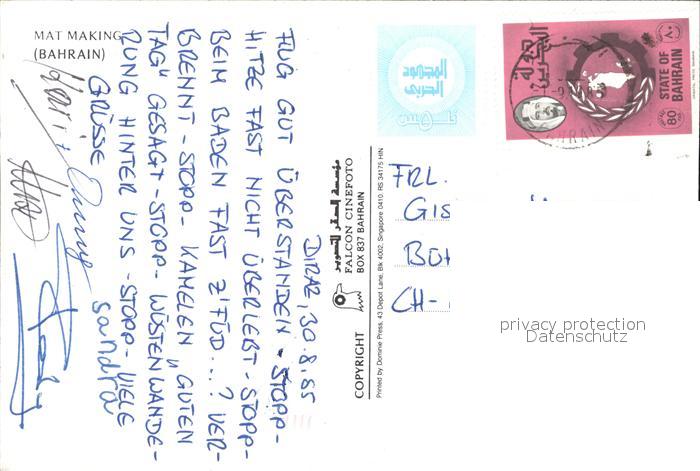 MAT MAKING
(BAHRAIN)
DIRAZ, 30.8.85
FLUG GUT ÜBERSTANDEN - STOPP-
HITZE FAST NICHT ÜBERLEBT - STOPP-
BEIM BADEN FAST Z'FÜD...? VER-
BRENNT - STOPP - KAMELEN „GUTEN
TAG" GESAGT - STOPP - WÜSTENWANDE-
RUNG HINTER UNS - STOPP - VIELE
GRÜSSE
sandra
COPYRIGHT
مؤسسة الصقر للتصوير
FALCON CINEFOTO
BOX 837 BAHRAIN
Printed by Dominie Press, 43 Depot Lane, Blk 4002, Singapore 0410. RS 34175 HIN
المجهود
الحربي
فلس
دولة البحرين
STATE OF
BAHRAIN
80
٨٠
BAHRAIN
FRL.
GIS
BOH
CH-
privacy protection
Datenschutz